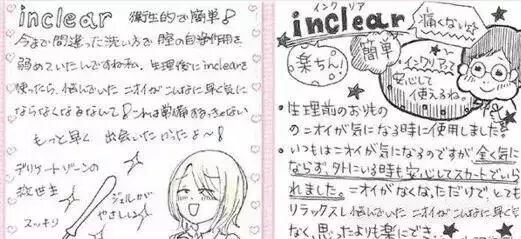 inclear 衛生的で簡単♪
今まで間違った洗い方で膣の自浄作用を
弱めていたんですね私、生理後にinclearを
使ったら、悩んでいたニオイがこんなに早く気に
ならなくなるなんて!これは常備するっきゃない
もっと早く 出会いたかったよ〜!
デリケートゾーンの
救世主
ジェルが
やさしい
スッキリ
インクリア
inclear
痛くない☆
簡単
楽ちん!
インクリアで
安心して
使えるね。
・生理前のおりもの
のニオイが気になる時に使用しました。
・いつもはニオイが気になるのですが全く気に
ならず、外にいる時も安心してスカートでいら
れました。ニオイがなくなっただけで、とても
リラックスし悩んでいたニオイがこんなに早く
なく、思ったより楽にでき、